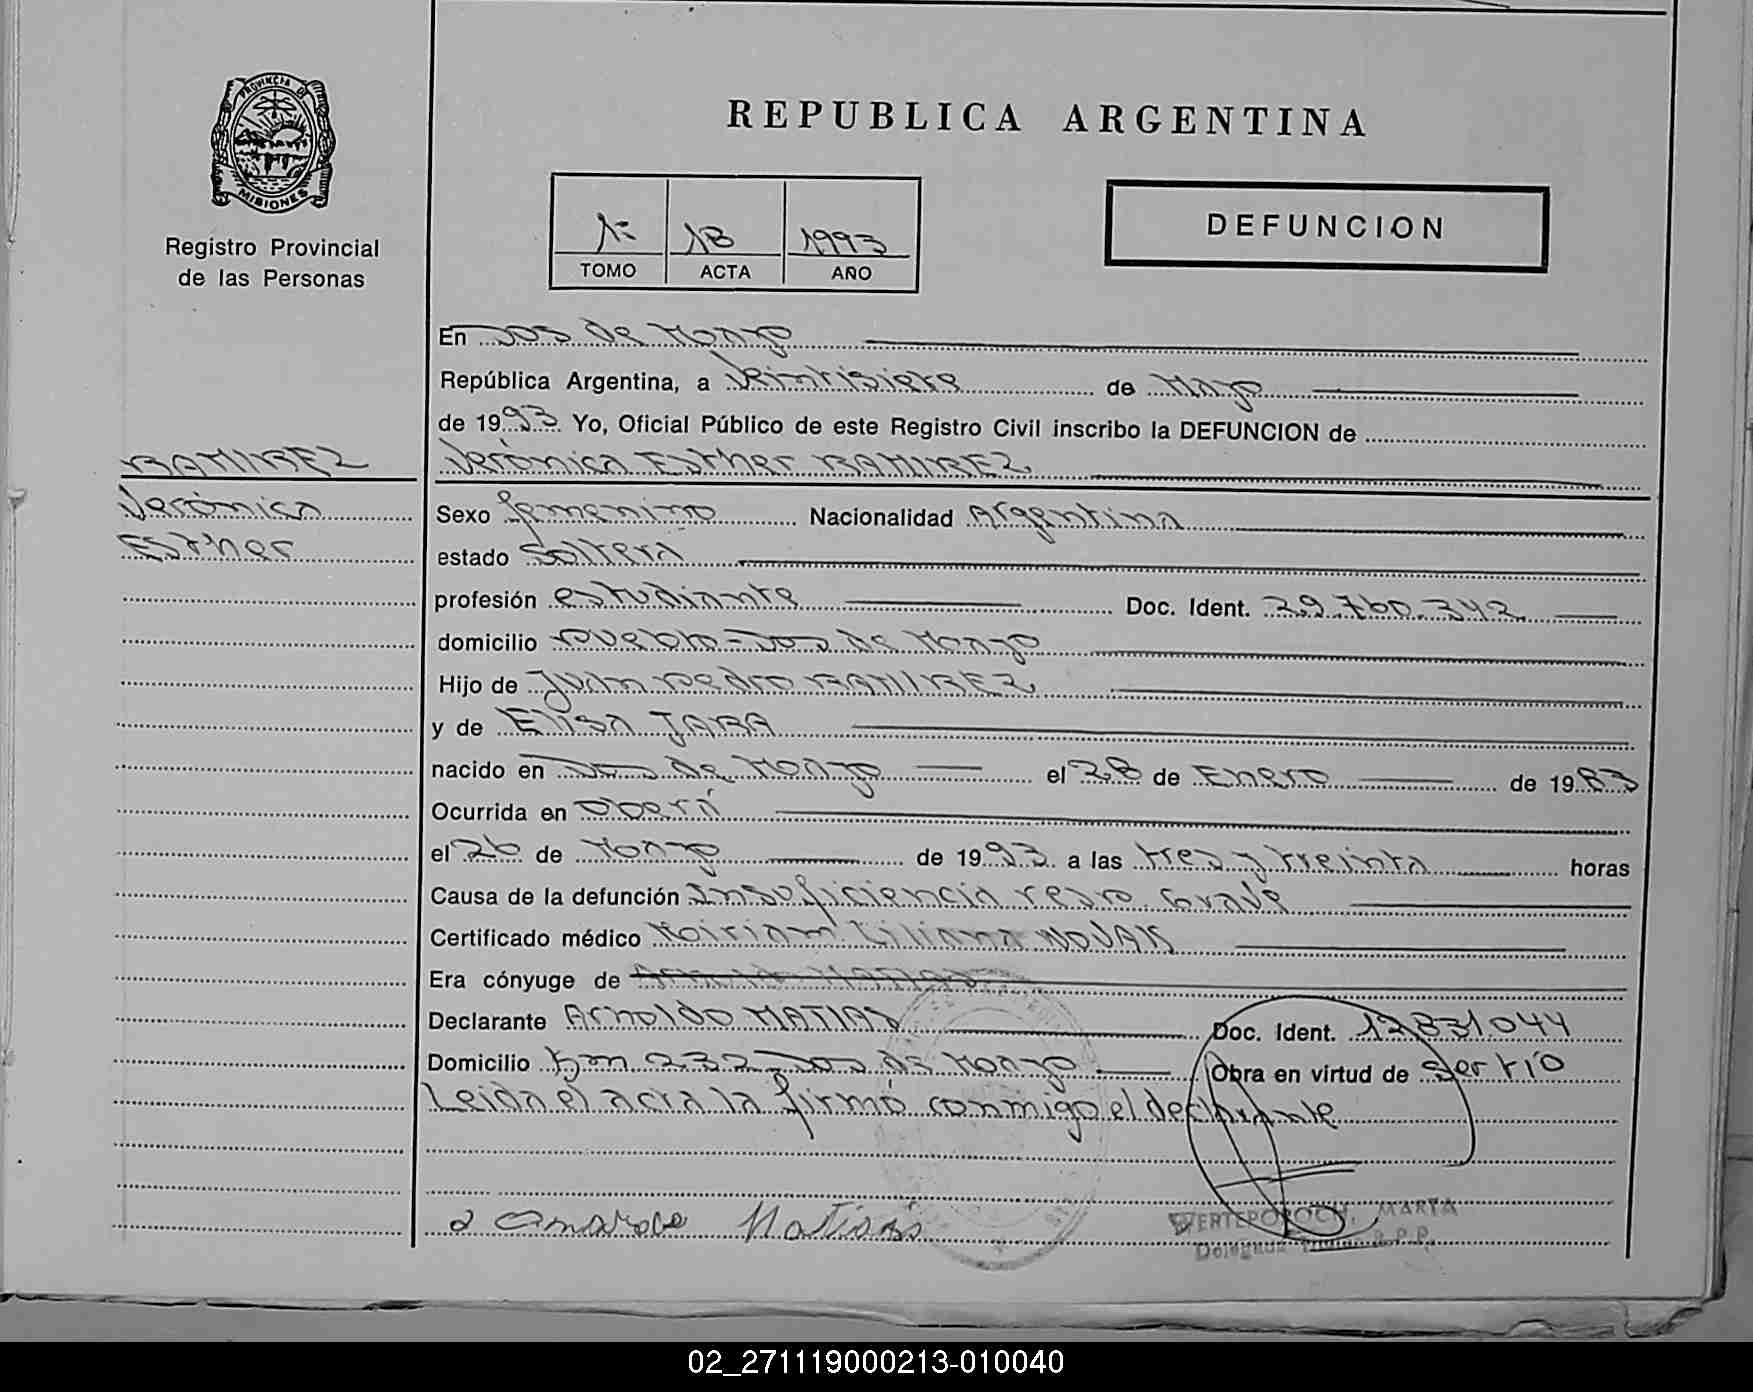 REPUBLICA ARGENTINA
PROVINCIA DE
MISIONES
Registro Provincial
de las Personas
1º 18 1993
TOMO ACTA AÑO
DEFUNCION
En Dos de Mayo
República Argentina, a Veintisiete de Mayo
de 1993 Yo, Oficial Público de este Registro Civil inscribo la DEFUNCION de
RAMIREZ
Verónica Esther RAMIREZ
Verónica
Esther
Sexo femenino Nacionalidad Argentina
estado Soltera
profesión estudiante Doc. Ident. 29.760.342
domicilio Pueblo - Dos de Mayo
Hijo de Juan Pedro RAMIREZ
y de Elisa JARA
nacido en Dos de Mayo el 28 de Enero de 1983
Ocurrida en Oberá
el 26 de Mayo de 1993 a las tres y treinta horas
Causa de la defunción Insuficiencia resp. Grave
Certificado médico Miriam Liliana NOVAK
Era cónyuge de
Declarante Arnoldo MATIAS Doc. Ident. 12.831.044
Domicilio Km 232 - Dos de Mayo Obra en virtud de ser tío
Leida el acta la firmó conmigo el declarante
Matias
WERTEPOROCH, MARTA
Delegada Titular R.P.P.
02_271119000213-010040